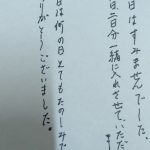 日はすみませんでした。
日、二日分一緒に入れさせていただ
日は何の日とてもたのしみで
りがとうございました。